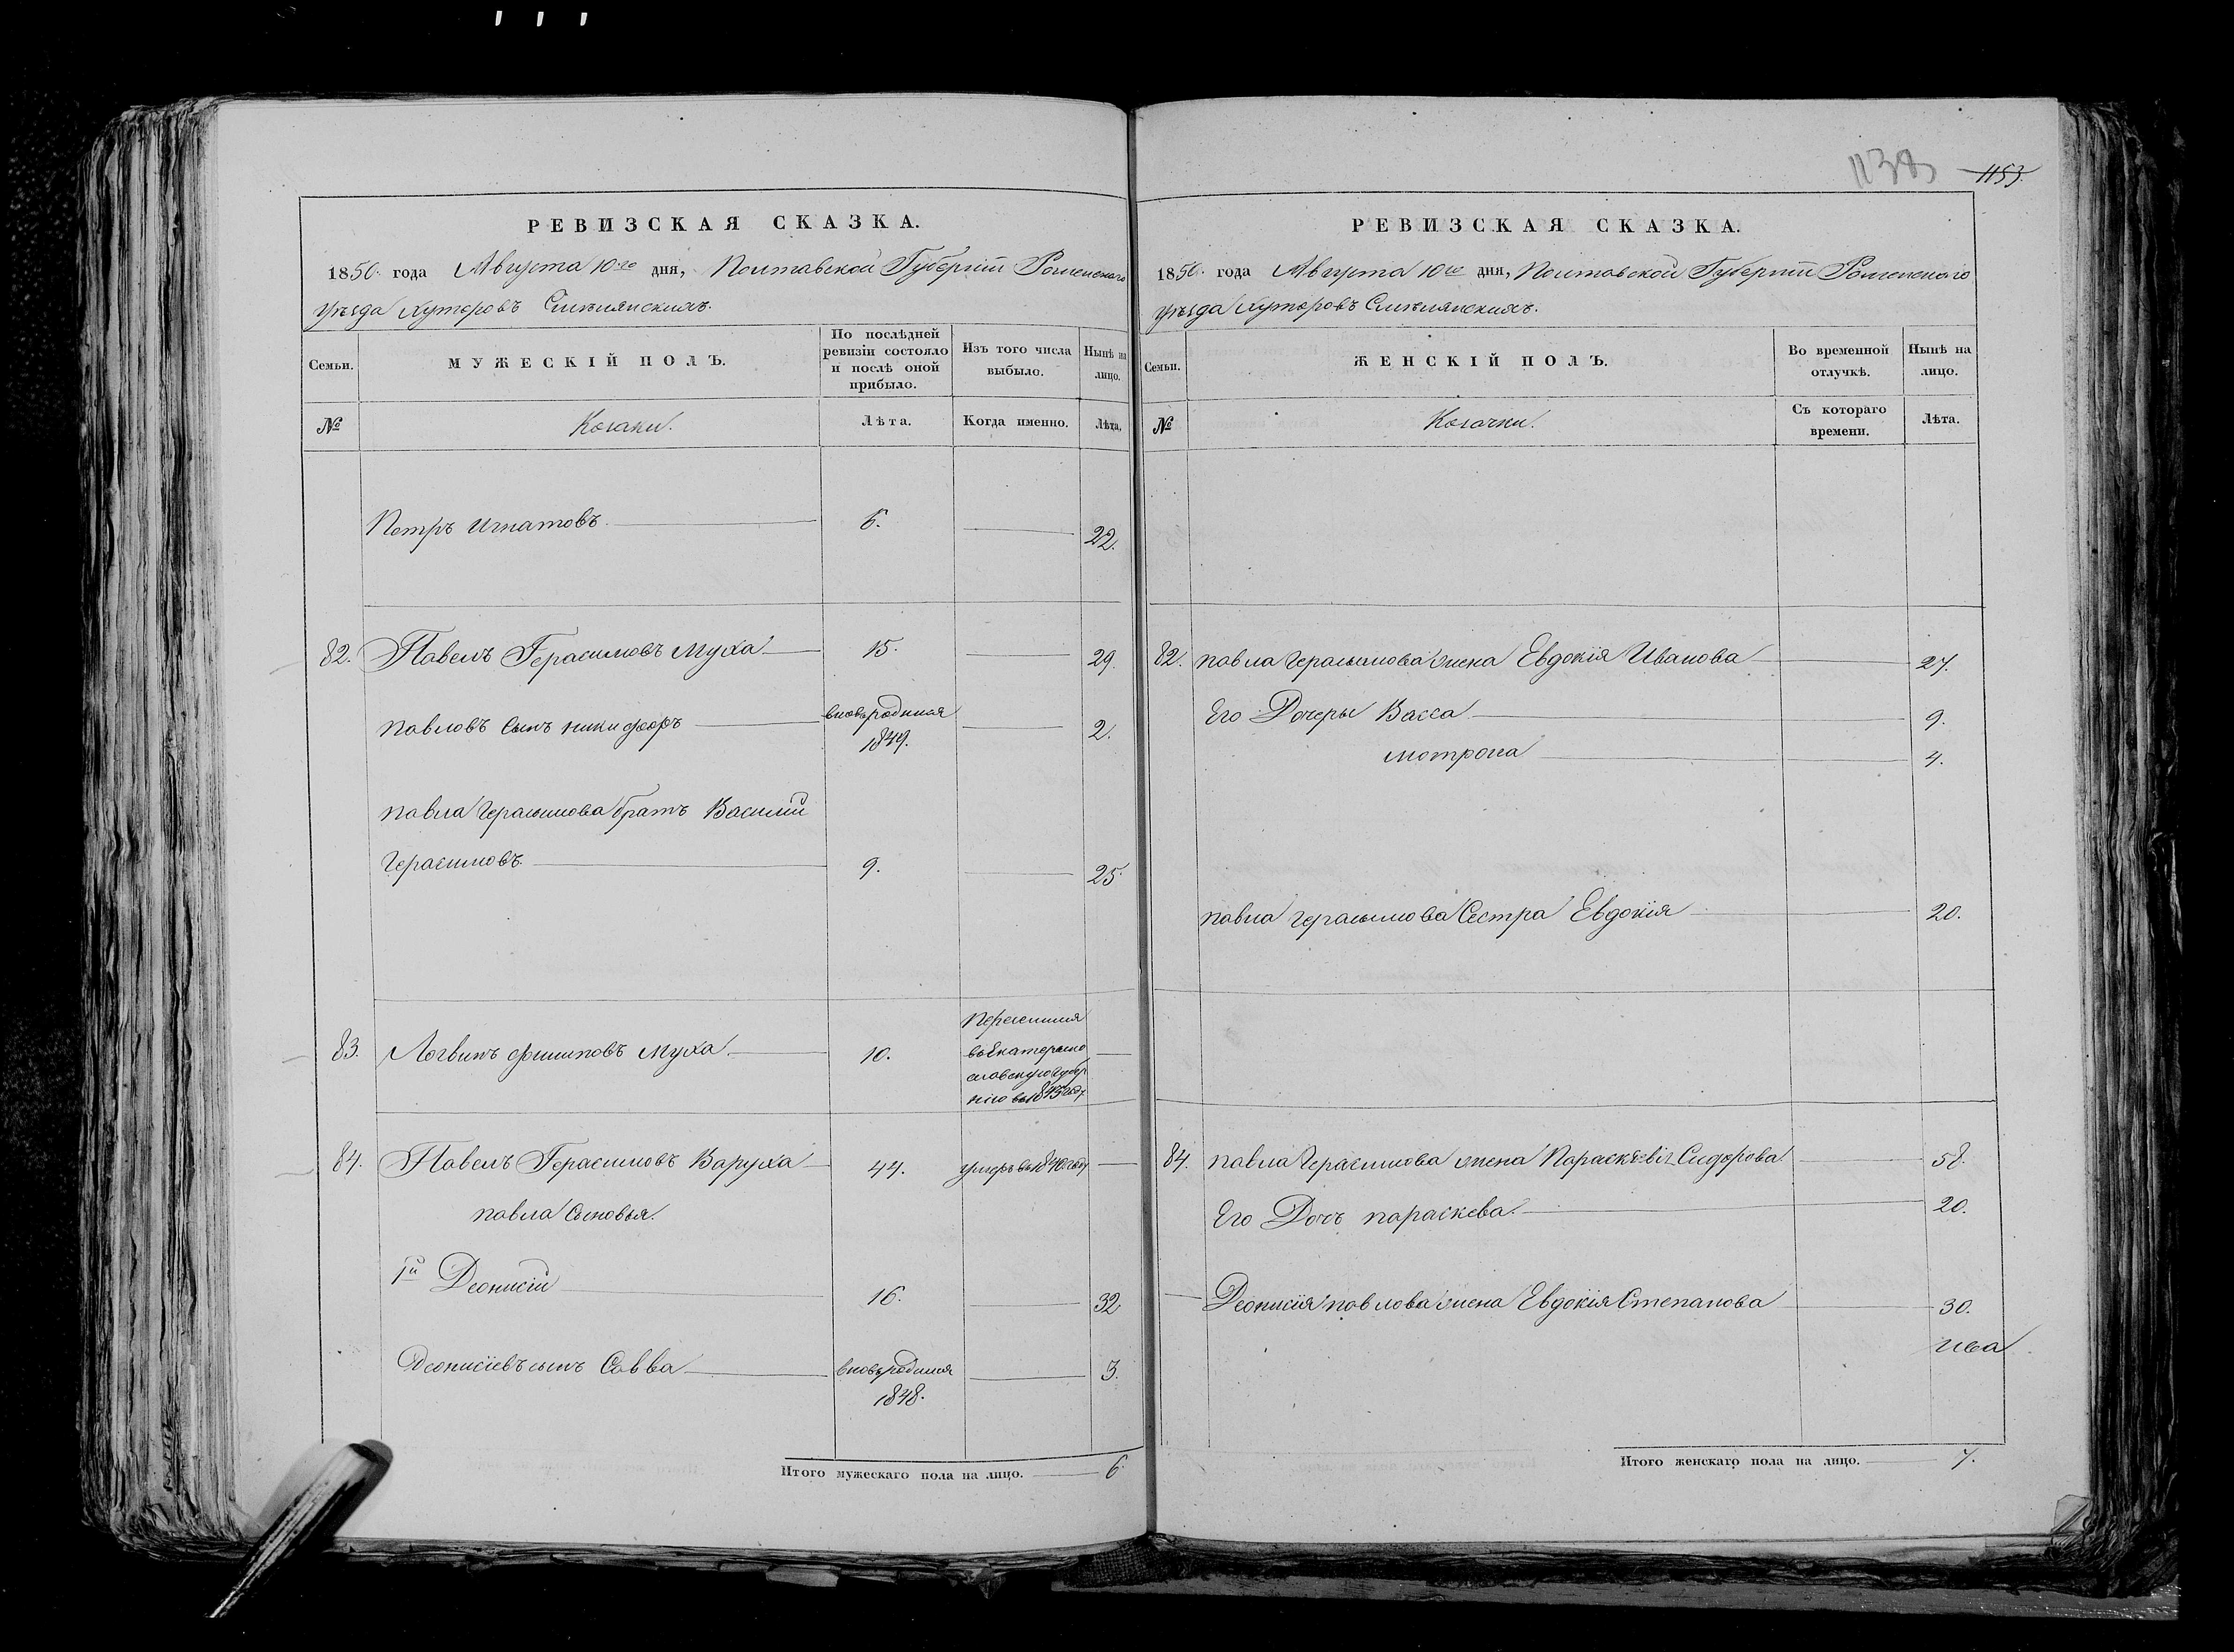 1138 1153.
РЕВИЗСКАЯ СКАЗКА.
1850. года Августа 10го дня, Полтавской Губернiи Роменскаго
уѣзда Хуторовъ Смѣлянскихъ.
Семьи.
МУЖЕСКIЙ ПОЛЪ.
По послѣдней ревизiи состояло и послѣ оной прибыло.
Изъ того числа выбыло.
Нынѣ на лицо.
№
Козаки.
Лѣта.
Когда именно.
Лѣта.
Петръ Игнатовъ. 6. 22.
82. Павелъ Герасимовъ Муха 15. 29.
Павловъ Сынъ никифоръ вновьродился 2.
1849.
павла Герасимова братъ Василий
Герасимовъ. 9. 25.
83. Логвинъ филиповъ Муха. 10. Переселился
въ Екатерино
славскую губер
нiю въ 1843 году
84. Павелъ Герасимовъ Варуха 44. умеръ въ 1840 году
павла Сыновья.
1й Деонисiй 16. 32
Деонисiевъ сынъ Савва вновьродился 3.
1848.
Итого мужескаго пола на лицо. 6.
РЕВИЗСКАЯ СКАЗКА.
1850. года Августа 10го дня, Полтавской Губернiи Роменскаго
уѣзда Хуторовъ Смѣлянскихъ.
Семьи.
ЖЕНСКIЙ ПОЛЪ.
Во временной отлучкѣ.
Нынѣ на лицо.
№
Козачки.
Съ котораго времени.
Лѣта.
82. павла Герасимова жена Евдокiя Иванова 27.
Его Дочеры Васса 9.
мотрона 4.
павла герасимова Сестра Евдокiя 20.
84. павла Герасимова жена Параскѣвiя Сидорова 58.
Его Дочь параскева. 20.
Деонисiя павлова жена Евдокiя Степанова 30.
Итого женскаго пола на лицо. 7.